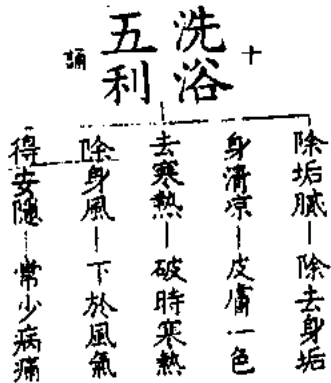 十
洗浴
五利
誦
除垢膩—除去身垢
身清凉—皮膚一色
去寒熱—破時寒熱
除身風—下於風氣
得安隱—常少病痛